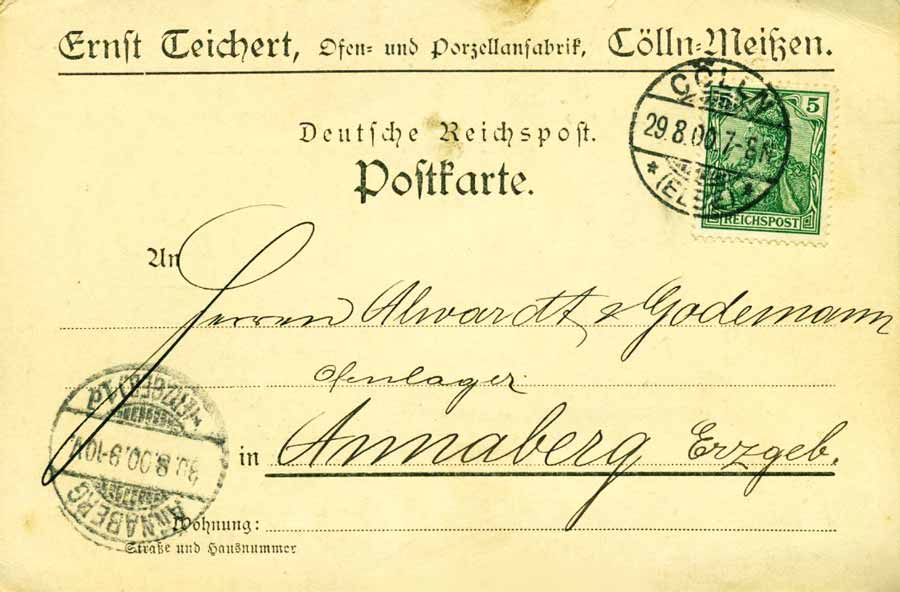 Ernst Teichert, Ofen- und Porzellanfabrik, Cölln-Meißen.
CÖLLN
29.8.00.7-8N
* (ELBE) *
5
REICHSPOST
Deutsche Reichspost.
Postkarte.
An
Herren Alwardt & Godemann
Ofenlager
in Annaberg Erzgeb.
ANNABERG
30.8.00.9-10V.
(ERZGEB.) 1a
Wohnung:
Straße und Hausnummer